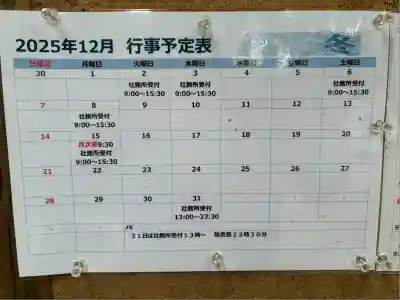 2025年12月 行事予定表
冬
日曜日 月曜日 火曜日 水曜日 木曜日 金曜日 土曜日
30 1 2 3 4 5 6
社務所受付 社務所受付 社務所受付
9:00~15:30 9:00~15:30 9:00~15:30
7 8 9 10 11 12 13
社務所受付
9:00~15:30
14 15 16 17 18 19 20
月次祭9:30
社務所受付
9:00~15:30
21 22 23 24 25 26 27
28 29 30 31
社務所受付
13:00~23:30
メモ
31日は社務所受付13時~ 除夜祭23時30分